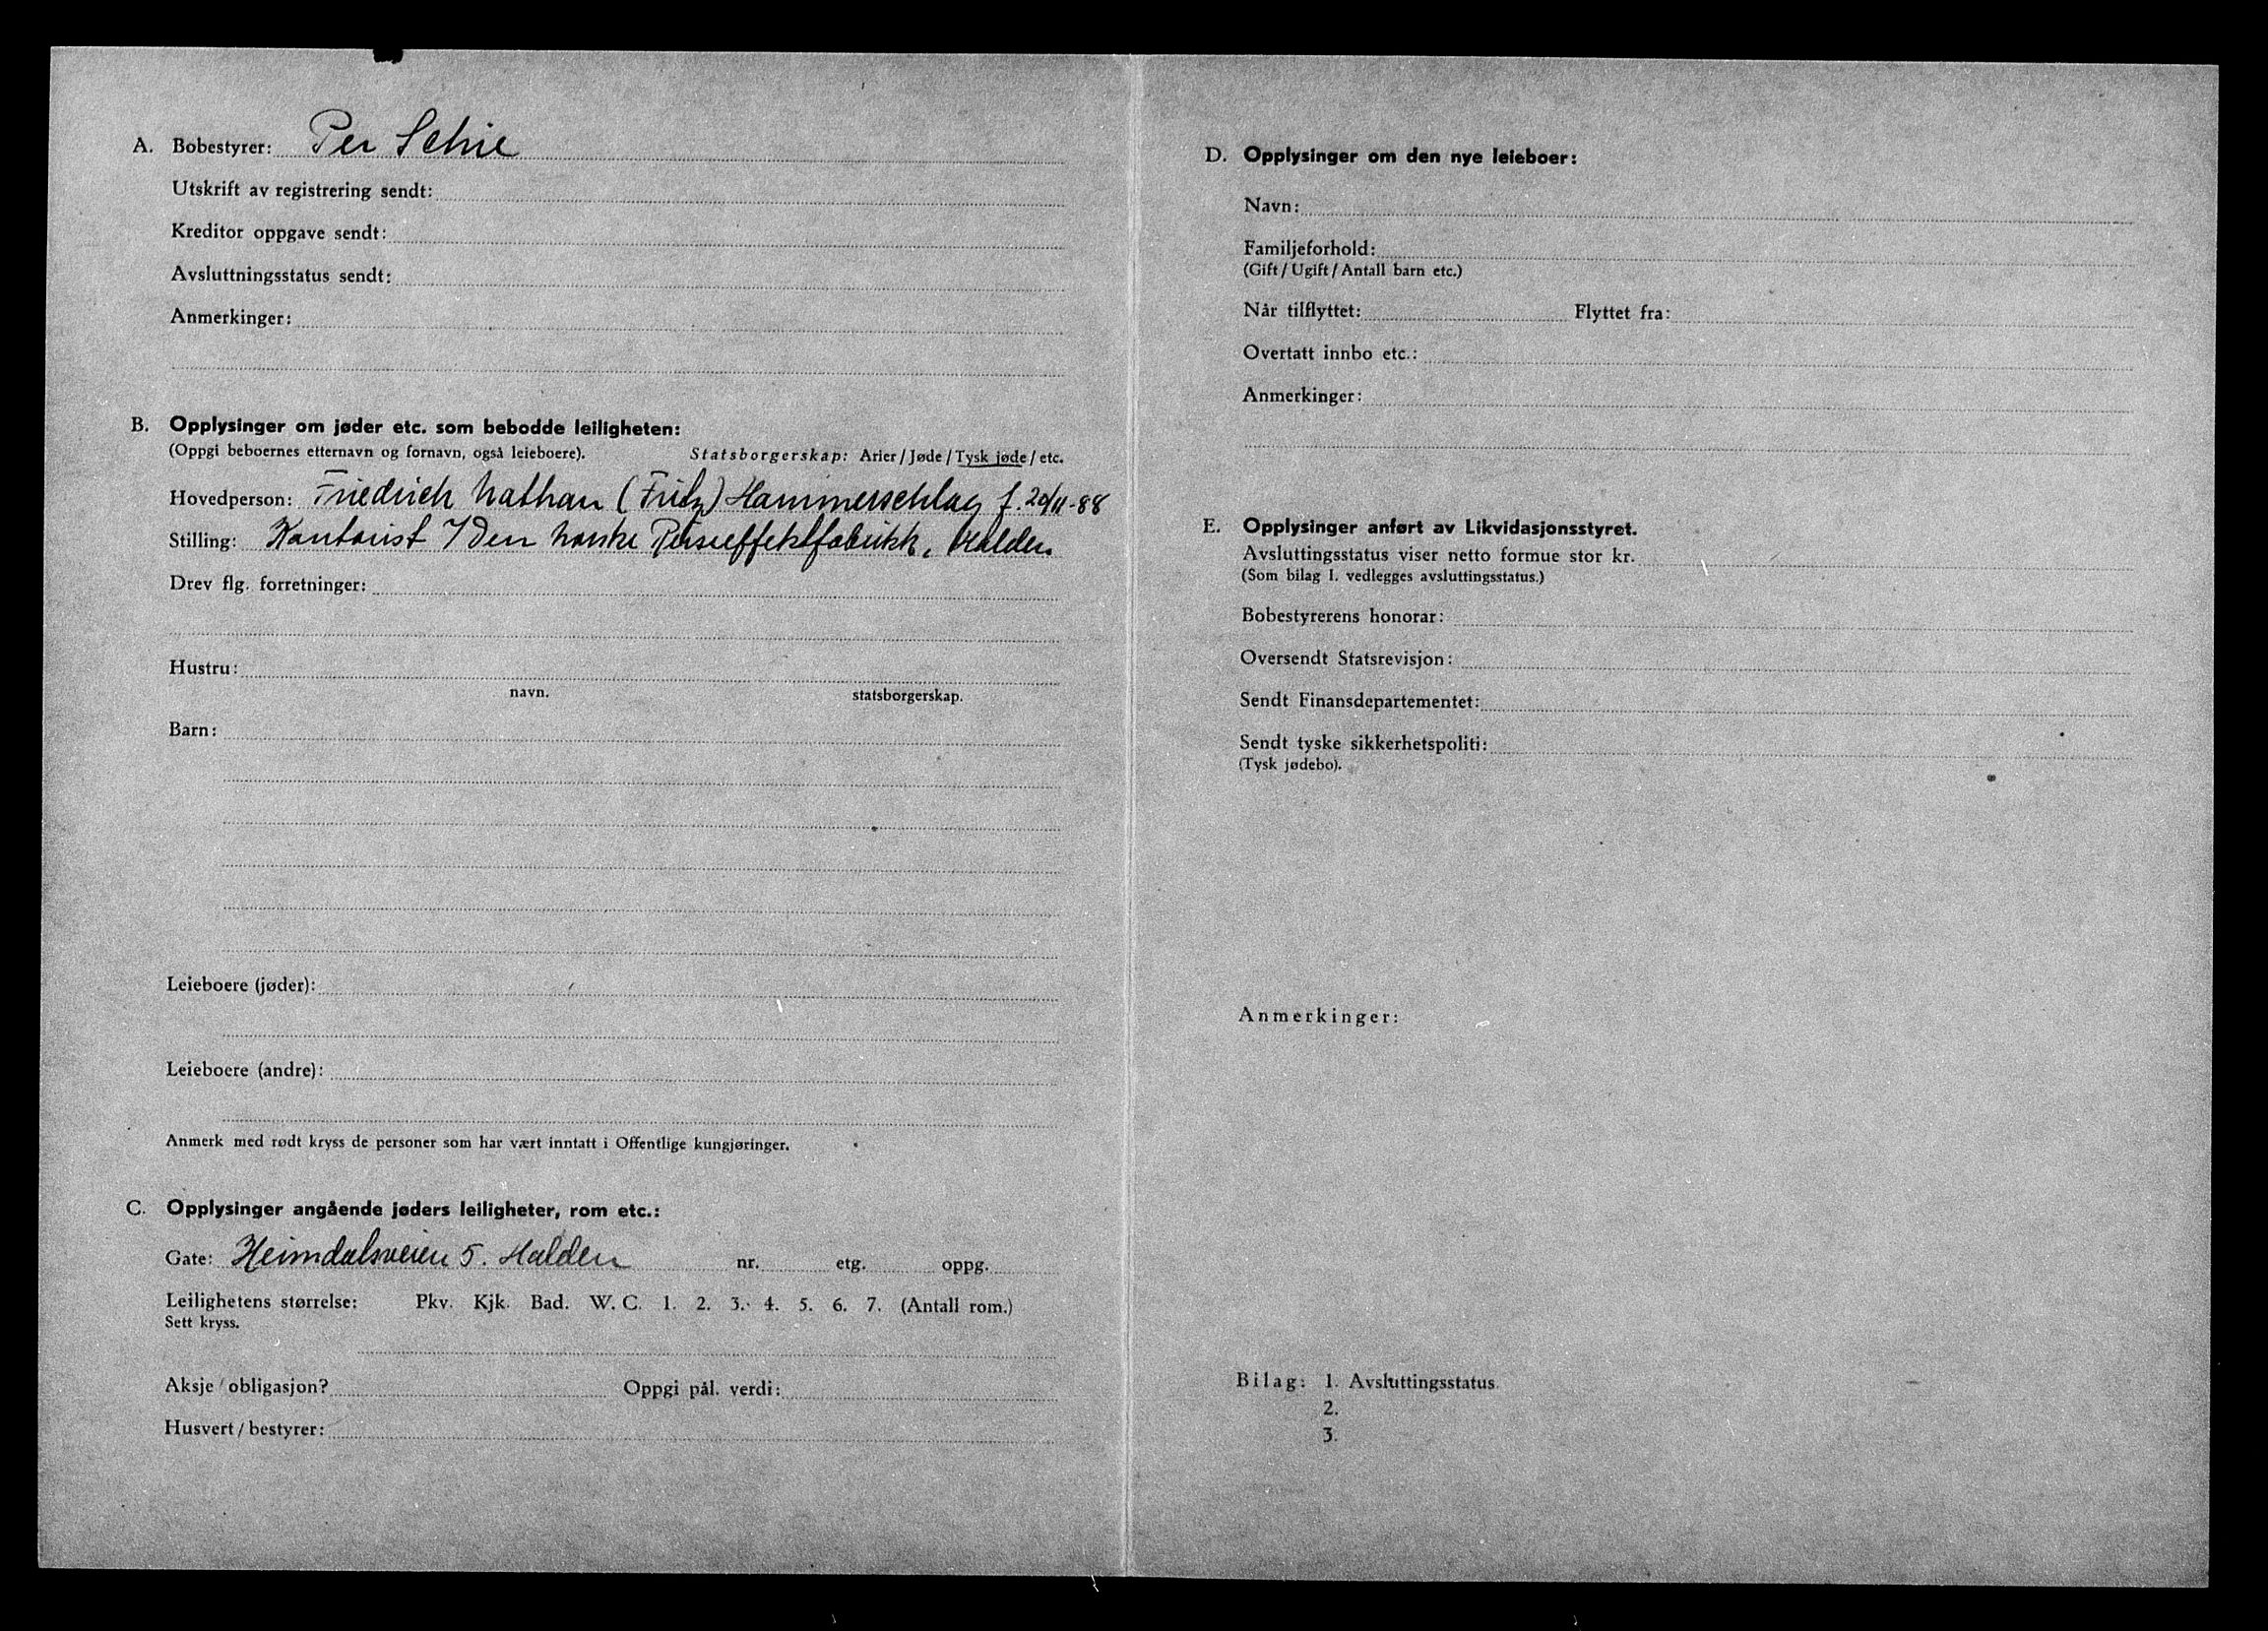 A. Bobestyrer: Per Schie
Utskrift av registrering sendt:
Kreditor oppgave sendt:
Avsluttningsstatus sendt:
Anmerkinger:
B. Opplysinger om jøder etc. som bebodde leiligheten:
(Oppgi beboernes etternavn og fornavn, også leieboere). Statsborgerskap: Arier / Jøde / Tysk jøde / etc.
Hovedperson: Friedrich Nathan (Fritz) Hammerschlag f. 20/11-88
Stilling: Kontorist i/ Den norske Reiseeffektfabrikk, Halden.
Drev flg. forretninger:
Hustru:
navn. statsborgerskap.
Barn:
Leieboere (jøder):
Leieboere (andre):
Anmerk med rødt kryss de personer som har vært inntatt i Offentlige kungjøringer.
C. Opplysinger angående jøders leiligheter, rom etc.:
Gate: Heimdalsveien 5. Halden nr. etg. oppg.
Leilighetens størrelse: Pkv. Kjk. Bad. W. C. 1. 2. 3. 4. 5. 6. 7. (Antall rom.)
Sett kryss.
Aksje / obligasjon? Oppgi pål. verdi:
Husvert / bestyrer:
D. Opplysinger om den nye leieboer:
Navn:
Familjeforhold:
(Gift / Ugift / Antall barn etc.)
Når tilflyttet: Flyttet fra:
Overtatt innbo etc.:
Anmerkinger:
E. Opplysinger anført av Likvidasjonsstyret.
Avsluttingsstatus viser netto formue stor kr.
(Som bilag 1. vedlegges avsluttingsstatus.)
Bobestyrerens honorar:
Oversendt Statsrevisjon:
Sendt Finansdepartementet:
Sendt tyske sikkerhetspoliti:
(Tysk jødebo).
Anmerkinger:
Bilag: 1. Avsluttingsstatus.
2.
3.